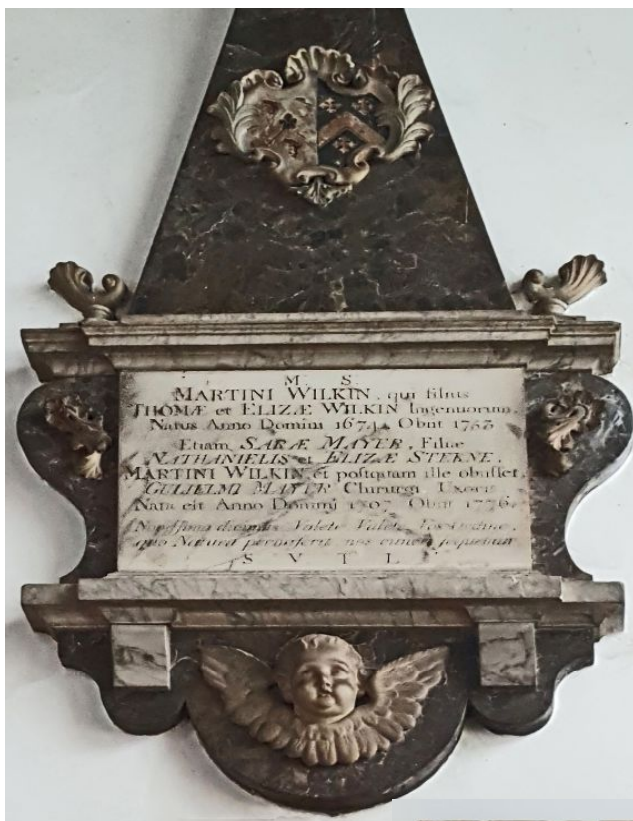 M S
MARTINI WILKIN, qui filius
THOMÆ et ELIZÆ WILKIN Ingenuorum,
Natus Anno Domini 1674 Obiit 1753
Etiam SARÆ MAYER, Filiæ
NATHANIELIS et ELIZÆ STERNE,
MARTINI WILKIN, et postquam ille obiisset,
GULIELMI MAYER Chirurgi Uxoris
Nata est Anno Domini 1707 Obiit 1776.
Novissima dicimus Valete Valete Nos
quo Natura permiserit nos cuncti sequemur
S V T L